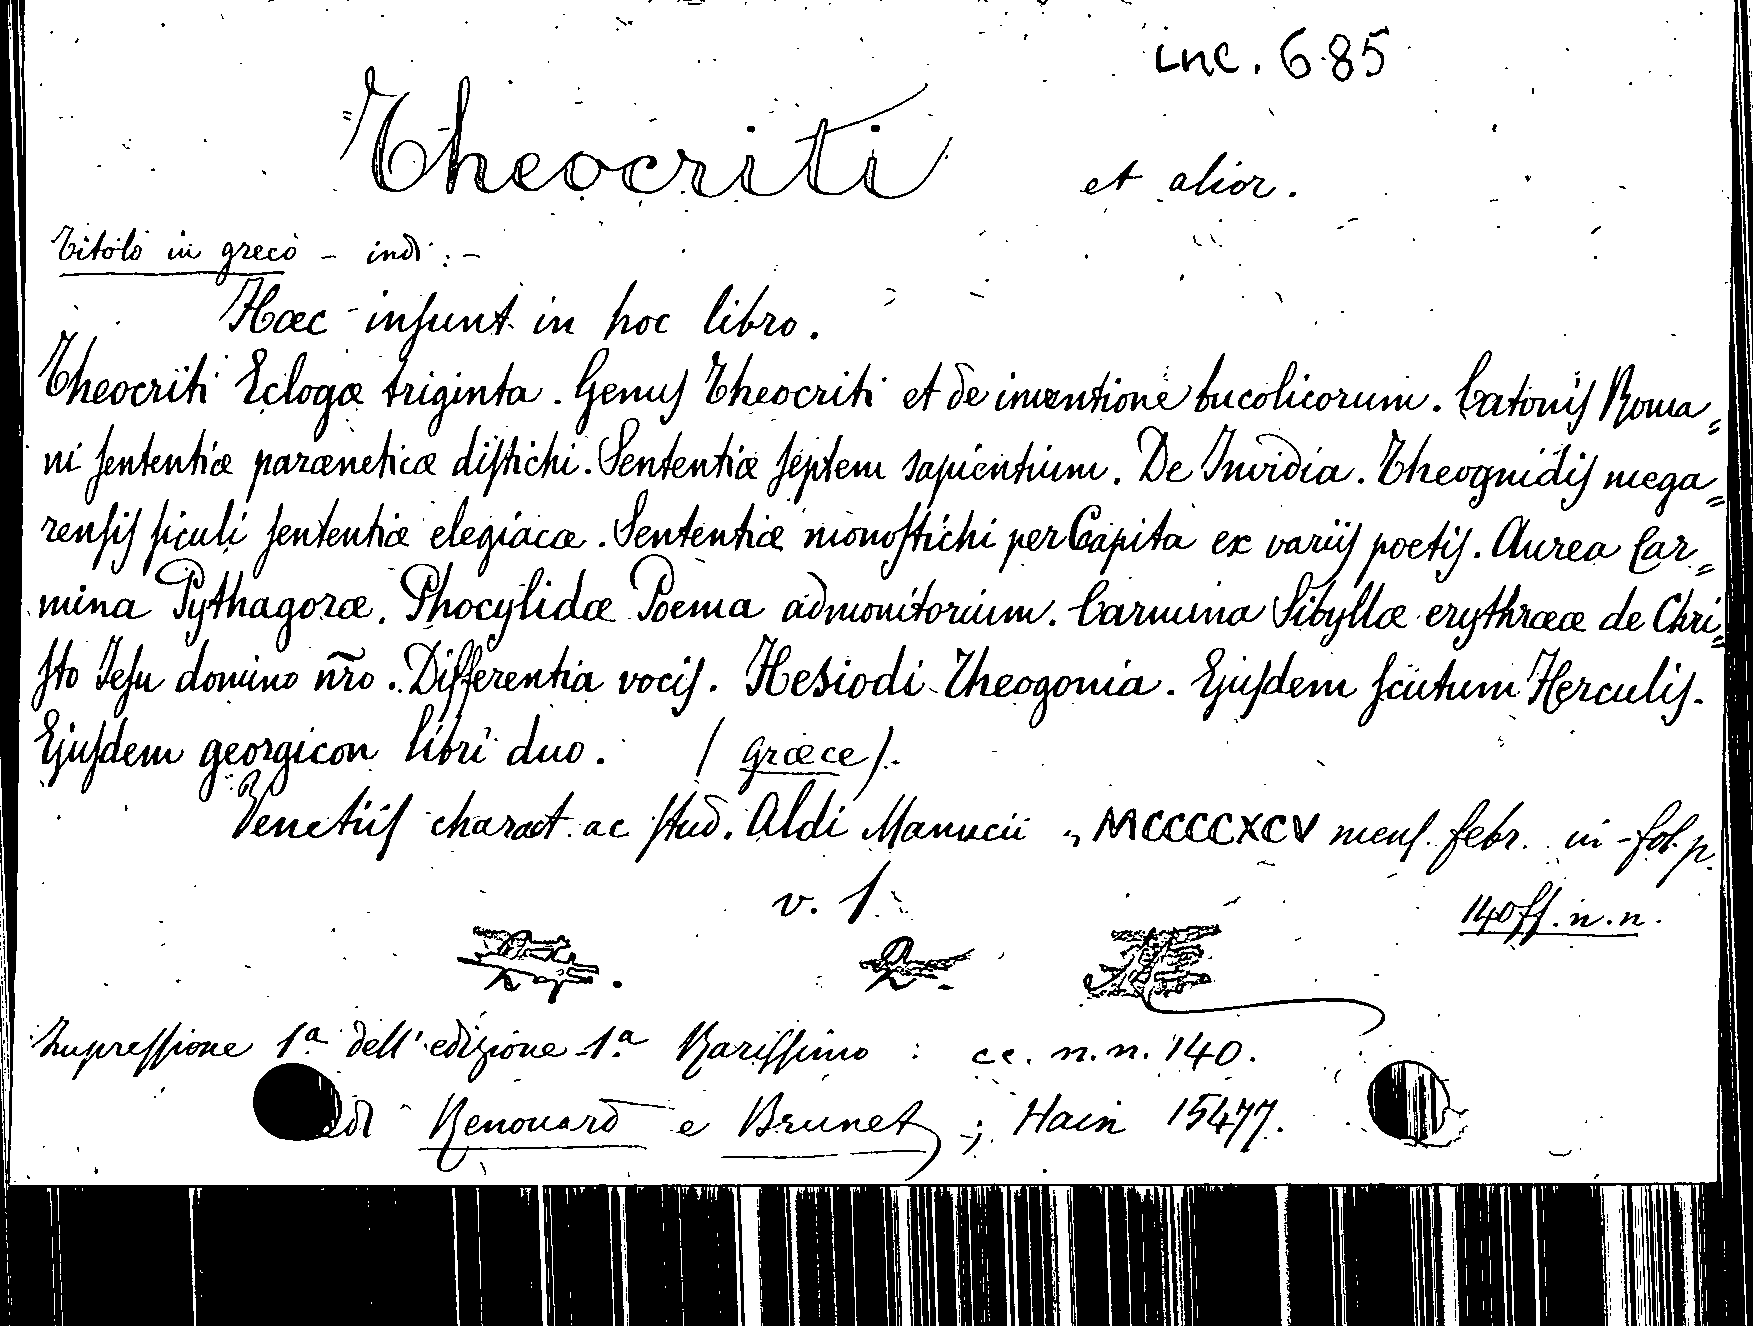 inc. 685
Theocriti et alior.
Titolo in greco - indi: -
Hæc inſunt in hoc libro.
Theocriti Eclogæ triginta. Genuſ Theocriti et de inventione bucolicorum. Catoniſ Roma=
ni ſententiæ paræneticæ diſtichi. Sententiæ ſeptem sapientium. De Invidia. Theognidiſ mega=
renſiſ ſiculi ſententiæ elegiacæ. Sententiæ monoſtichi per Capita ex variiſ poetiſ. Aurea Car=
mina Pythagoræ. Phocylidæ Poema admonitorium. Carmina Sibyllæ erythrææ de Chri=
ſto Jeſu domino nr̃o. Differentia vociſ. Hesiodi Theogonia. Ejuſdem ſcutum Herculiſ.
Ejuſdem georgicon libri duo. (græce).
Venetiiſ charact. ac ſtud. Aldi Manucii, MCCCCXCV menſ. febr. in-fol. p.
v. 1 140 ff. n. n.
Impreſſione 1.a dell'edizione 1.a Rariſſimo: cc. n. n. 140.
Renouard e Brunet; Hain 15477.